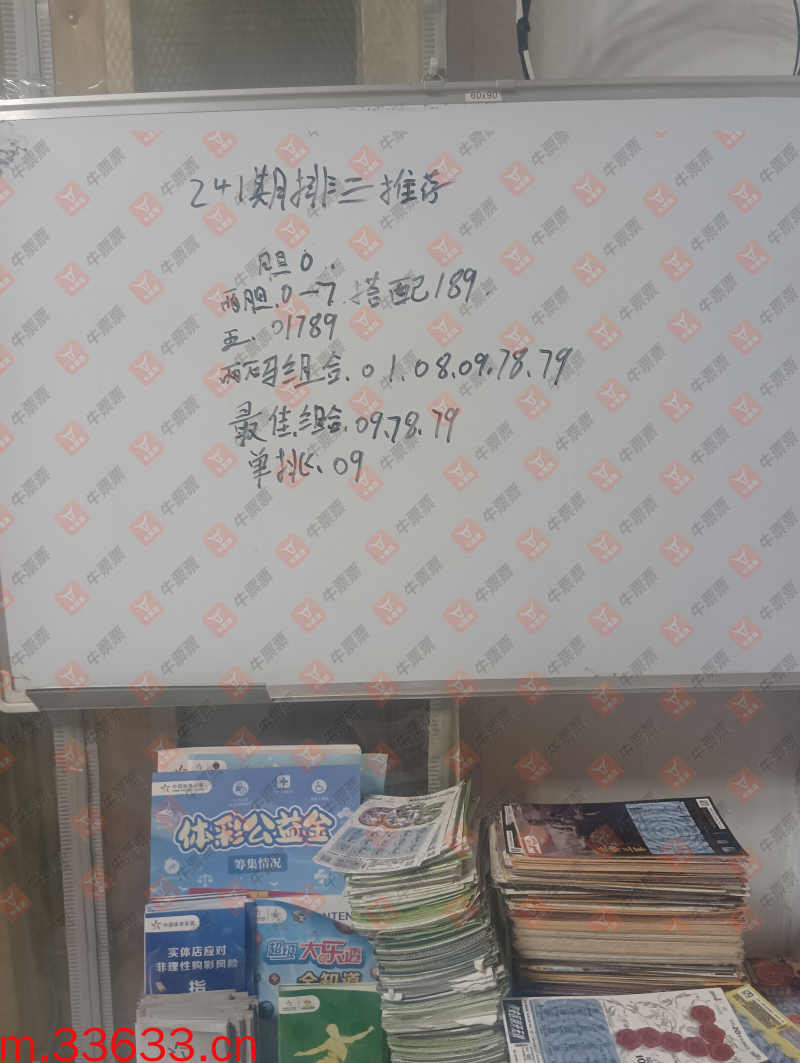 60x90
241期排三推荐
胆0.
两胆.0-7.搭配189.
五.01789
两码组合.01.08.09.78.79
最佳组合.09.78.79
单挑、09
牛票票
中国体育彩票
体彩公益金
筹集情况
中国体育彩票
实体店应对
非理性购彩风险
指
超级大乐透
全知道
m.33633.cn